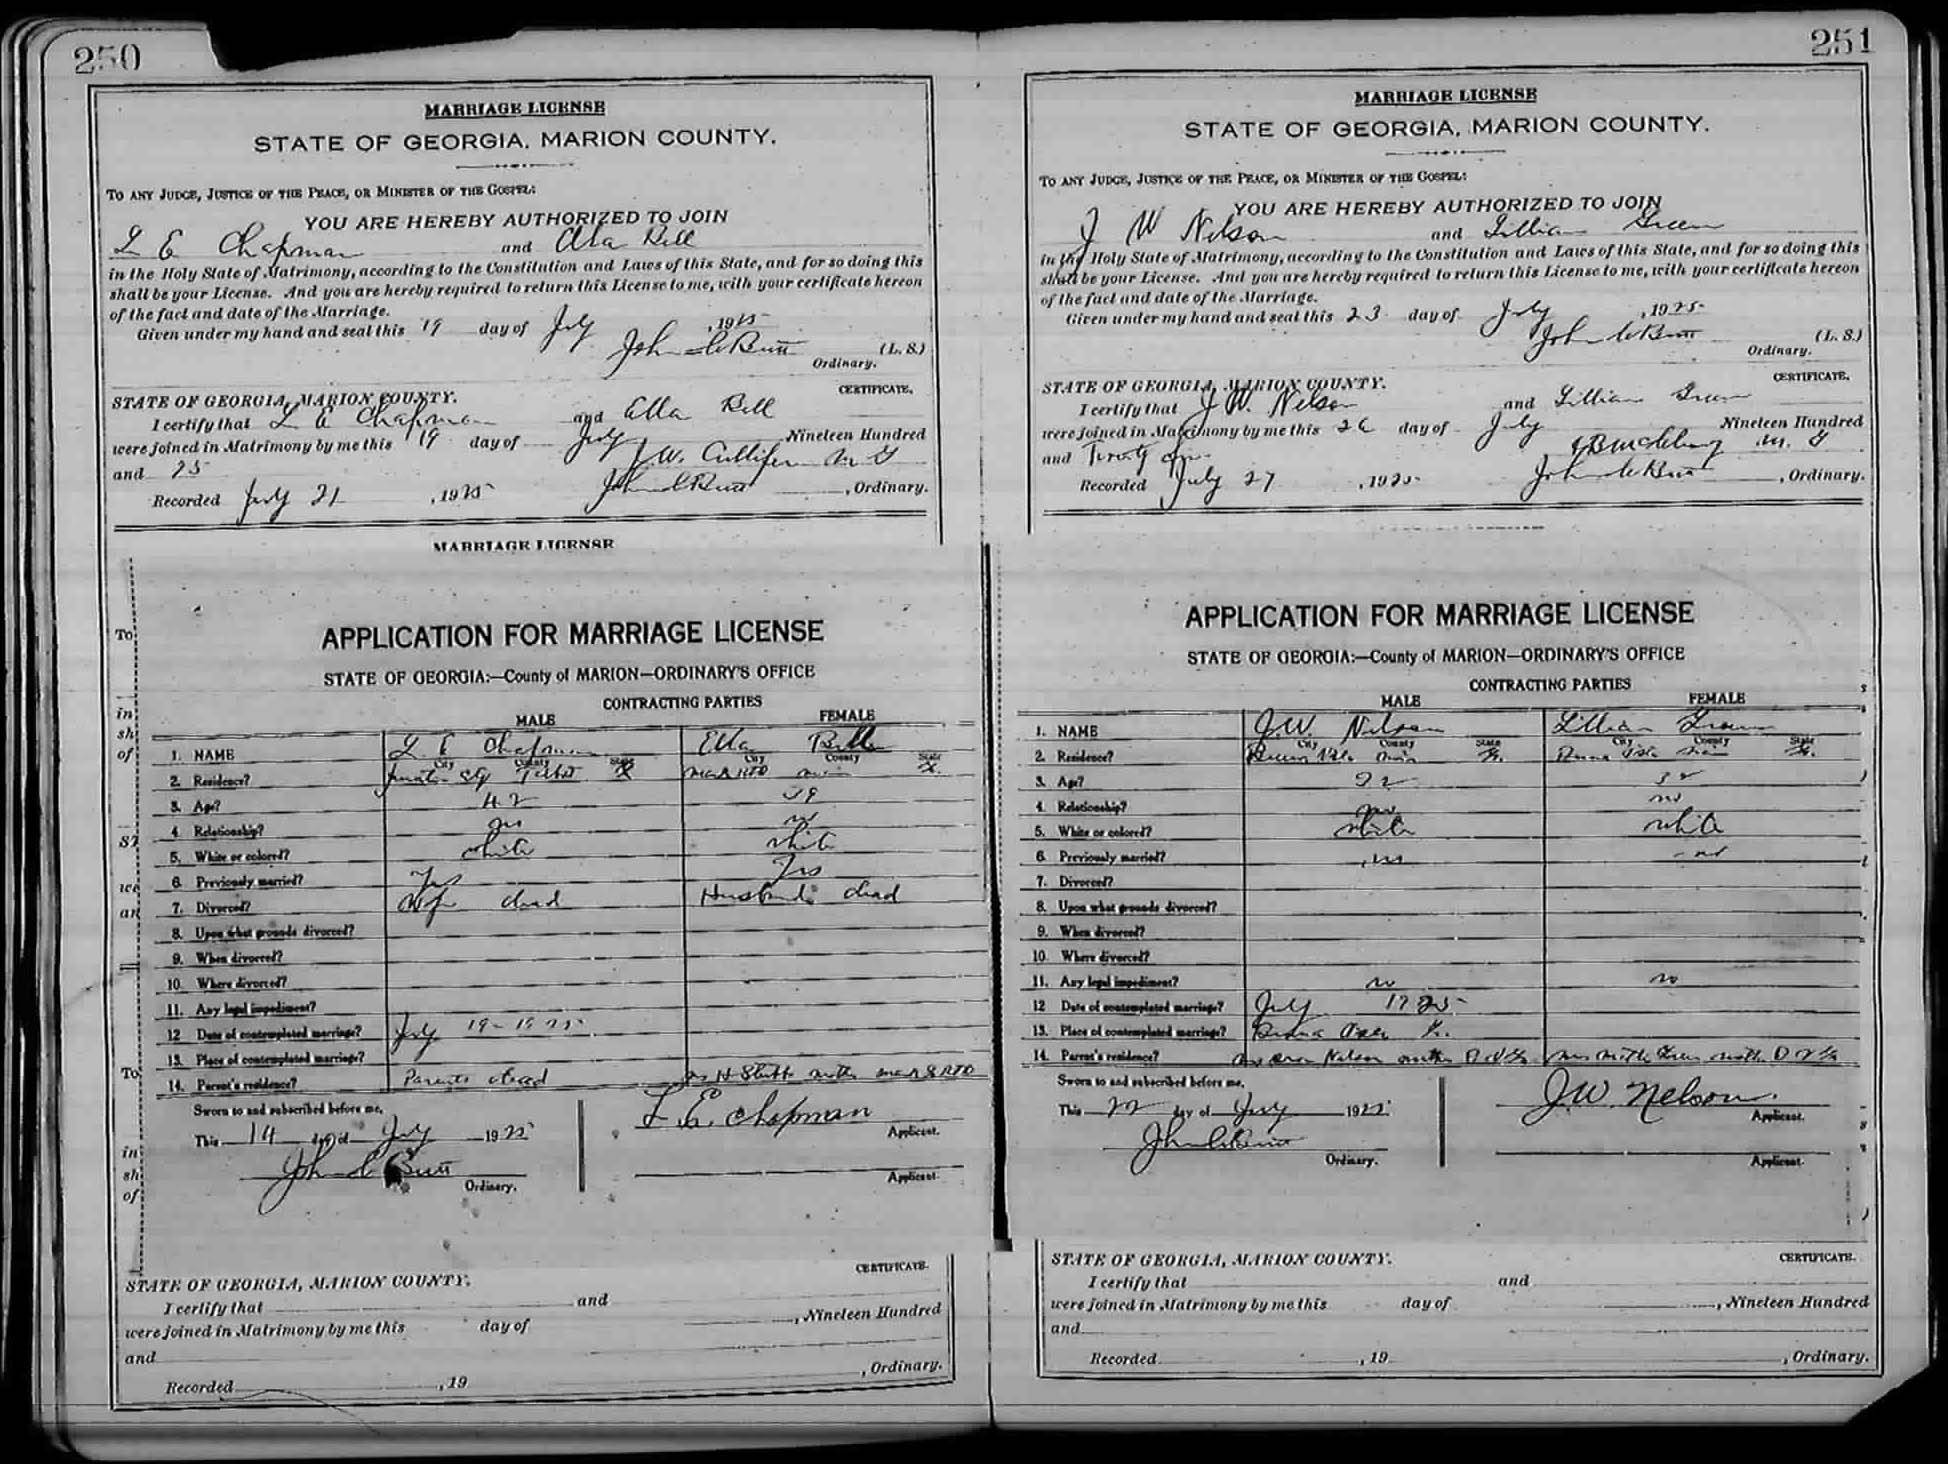 250
MARRIAGE LICENSE
STATE OF GEORGIA, MARION COUNTY.
TO ANY JUDGE, JUSTICE OF THE PEACE, OR MINISTER OF THE GOSPEL:
YOU ARE HEREBY AUTHORIZED TO JOIN
L E Chapman and Ella Bell
in the Holy State of Matrimony, according to the Constitution and Laws of this State, and for so doing this
shall be your License. And you are hereby required to return this License to me, with your certificate hereon
of the fact and date of the Marriage.
Given under my hand and seal this 19 day of July, 1925
John C Butt (L. S.)
Ordinary.
CERTIFICATE.
STATE OF GEORGIA, MARION COUNTY.
I certify that L E Chapman and Ella Bell
were joined in Matrimony by me this 19 day of July Nineteen Hundred
and 25 J. W. Cullifer M G
Recorded July 21, 1925 John C Butt, Ordinary.
MARRIAGE LICENSE
To
in
sh
of
ST
we
an
To
in
sh
of
APPLICATION FOR MARRIAGE LICENSE
STATE OF GEORGIA:—County of MARION—ORDINARY'S OFFICE
CONTRACTING PARTIES
MALE FEMALE
1. NAME L E Chapman Ella Bell
City County State City County State
2. Residence? Junction City Talbot
3. Age? 42
4. Relationship? no no
5. White or colored? white white
6. Previously married? Yes Yes
7. Divorced? Wife dead Husband dead
8. Upon what grounds divorced?
9. When divorced?
10. Where divorced?
11. Any legal impediment?
12 Date of contemplated marriage? July 19-1925
13. Place of contemplated marriage?
14. Parent's residence? Parents dead
Sworn to and subscribed before me,
This 14 day of July 1925
L. E. Chapman
Applicant.
John C Butt
Ordinary.
Applicant.
CERTIFICATE.
STATE OF GEORGIA, MARION COUNTY.
I certify that and
were joined in Matrimony by me this day of , Nineteen Hundred
and
Recorded , 19 , Ordinary.
251
MARRIAGE LICENSE
STATE OF GEORGIA, MARION COUNTY.
TO ANY JUDGE, JUSTICE OF THE PEACE, OR MINISTER OF THE GOSPEL:
YOU ARE HEREBY AUTHORIZED TO JOIN
J W Nelson and Lillian Green
in the Holy State of Matrimony, according to the Constitution and Laws of this State, and for so doing this
shall be your License. And you are hereby required to return this License to me, with your certificate hereon
of the fact and date of the Marriage.
Given under my hand and seal this 23 day of July, 1925
John C Butt (L. S.)
Ordinary.
CERTIFICATE.
STATE OF GEORGIA, MARION COUNTY.
I certify that J. W. Nelson and Lillian Green
were joined in Matrimony by me this 26 day of July Nineteen Hundred
and Twenty five M. G
Recorded July 27, 1925 John C Butt, Ordinary.
APPLICATION FOR MARRIAGE LICENSE
STATE OF GEORGIA:—County of MARION—ORDINARY'S OFFICE
CONTRACTING PARTIES
MALE FEMALE
1. NAME J.W. Nelson Lillian Green
City County State City County State
2. Residence? Buena Vista Ga. Buena Vista Ga.
3. Age? 32
4. Relationship? no no
5. White or colored? white white
6 Previously married? no no
7. Divorced?
8. Upon what grounds divorced?
9. When divorced?
10. Where divorced?
11. Any legal impediment? no no
12 Date of contemplated marriage? July 25
13. Place of contemplated marriage? Buena Vista Ga.
14. Parent's residence? Nelson mother B V Ga Mrs Green mother B V Ga
Sworn to and subscribed before me,
This 22 day of July 1925
J.W. Nelson.
Applicant.
John C Butt
Ordinary.
Applicant.
CERTIFICATE.
STATE OF GEORGIA, MARION COUNTY.
I certify that and
were joined in Matrimony by me this day of , Nineteen Hundred
and
Recorded , 19 , Ordinary.